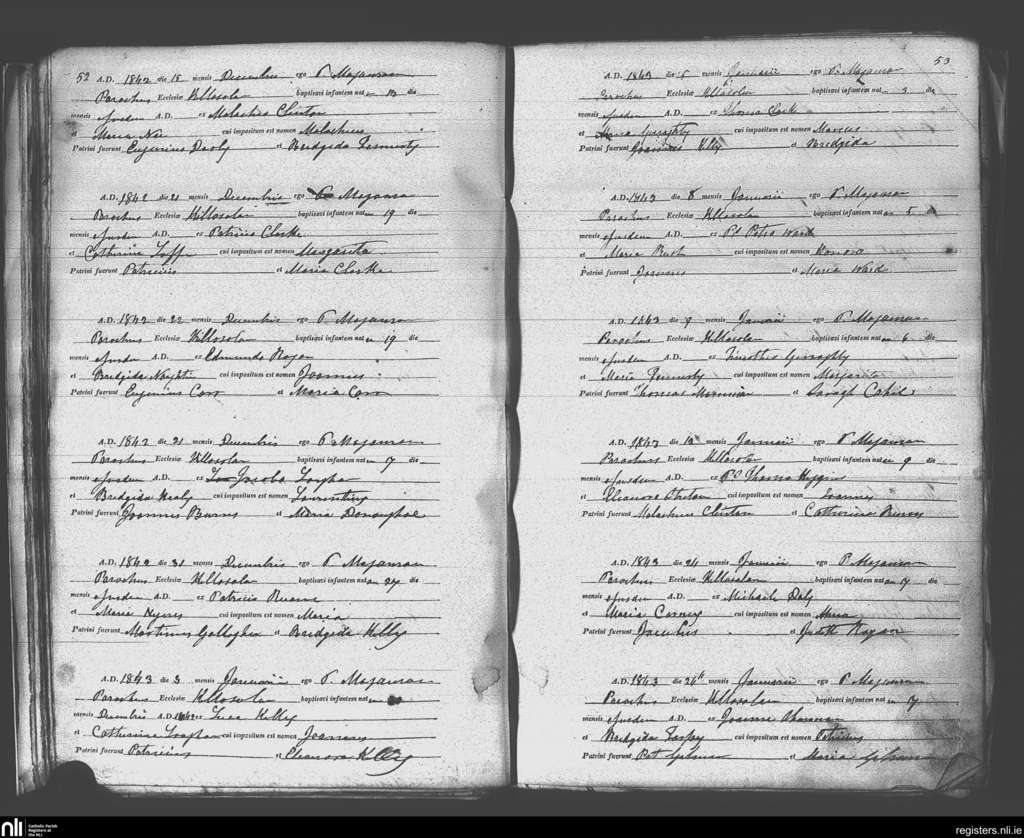 52
A.D. 1842 die 15 mensis Decembris ego P. Maganran
Parochus Ecclesiæ Killosolan baptisavi infantem nat un 13 die
mensis ejusdem A.D. ex Malachia Clinton
et Maria cui impositum est nomen Malachius
Patrini fuerunt Eugenius Daoly et Bridgida
A.D. 1842 die 21 mensis Decembris ego P. Maganran
Parochus Ecclesiæ Killosolan baptisavi infantem nat un 19 die
mensis ejusdem A.D. ex Patricio Clarke
et Catherine cui impositum est nomen Margarita
Patrini fuerunt Patricius et Maria Clarke
A.D. 1842 die 22 mensis Decembris ego P. Maganran
Parochus Ecclesiæ Killosolan baptisavi infantem nat un 19 die
mensis ejusdem A.D. ex Edmundo Hogan
et Bridgida cui impositum est nomen Joannes
Patrini fuerunt Eugenius Carr et Maria Carr
A.D. 1842 die 21 mensis Decembris ego P. Maganran
Parochus Ecclesiæ Killosolan baptisavi infantem nat un 17 die
mensis ejusdem A.D. ex Jacobo
et Bridgida Healy cui impositum est nomen
Patrini fuerunt Joannis Burns et Maria Donoughoe
A.D. 1842 die 31 mensis Decembris ego P. Maganran
Parochus Ecclesiæ Killosolan baptisavi infantem nat un 27 die
mensis ejusdem A.D. ex Patricio
et Maria cui impositum est nomen Maria
Patrini fuerunt Martinus Gallagher et Bridgida Kelly
A.D. 1843 die 3 mensis Januarii ego P. Maganran
Parochus Ecclesiæ Killosolan baptisavi infantem nat un die
mensis Decembris A.D. 1842 ex Luca Kelly
et Catherine cui impositum est nomen Joannes
Patrini fuerunt Patricius et Eleanora Kelly
53
A.D. 1843 die 5 mensis Januarii ego P. Maganran
Parochus Ecclesiæ Killosolan baptisavi infantem nat 3 die
mensis ejusdem A.D. ex Thoma Clark
et Maria Geraghty cui impositum est nomen Marcus
Patrini fuerunt Joannes Kelly et Bridgida
A.D. 1843 die 8 mensis Januarii ego P. Maganran
Parochus Ecclesiæ Killosolan baptisavi infantem nat un 5 die
mensis ejusdem A.D. ex Petro Ward
et Maria cui impositum est nomen Honora
Patrini fuerunt Joannes et Maria Ward
A.D. 1843 die 9 mensis Januarii ego P. Maganran
Parochus Ecclesiæ Killosolan baptisavi infantem nat un 6 die
mensis ejusdem A.D. ex Timotheo Geraghty
et Maria cui impositum est nomen Margarita
Patrini fuerunt Thomas et Sarah Cahil
A.D. 1843 die 12 mensis Januarii ego P. Maganran
Parochus Ecclesiæ Killosolan baptisavi infantem nat un 9 die
mensis ejusdem A.D. ex Thoma Higgins
et Eleanora cui impositum est nomen Joannes
Patrini fuerunt Malachius Clinton et Catherina
A.D. 1843 die 24 mensis Januarii ego P. Maganran
Parochus Ecclesiæ Killosolan baptisavi infantem nat un 17 die
mensis ejusdem A.D. ex Michaele Daly
et Maria cui impositum est nomen
Patrini fuerunt Jacobus et Judith
A.D. 1843 die 24th mensis Januarii ego P. Maganran
Parochus Ecclesiæ Killosolan baptisavi infantem nat un 17
mensis ejusdem A.D. ex Joanne
et Bridgida cui impositum est nomen Patricius
Patrini fuerunt Pat et Maria
nli
Catholic Parish
Registers at
the NLI
registers.nli.ie